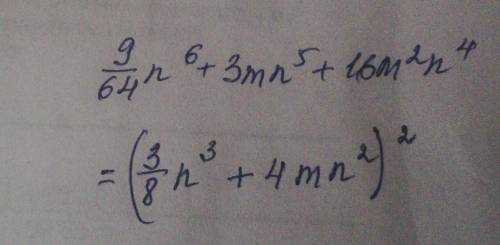 9/64 n⁶ + 3mn⁵ + 16m²n⁴
= (3/8 n³ + 4mn²)²